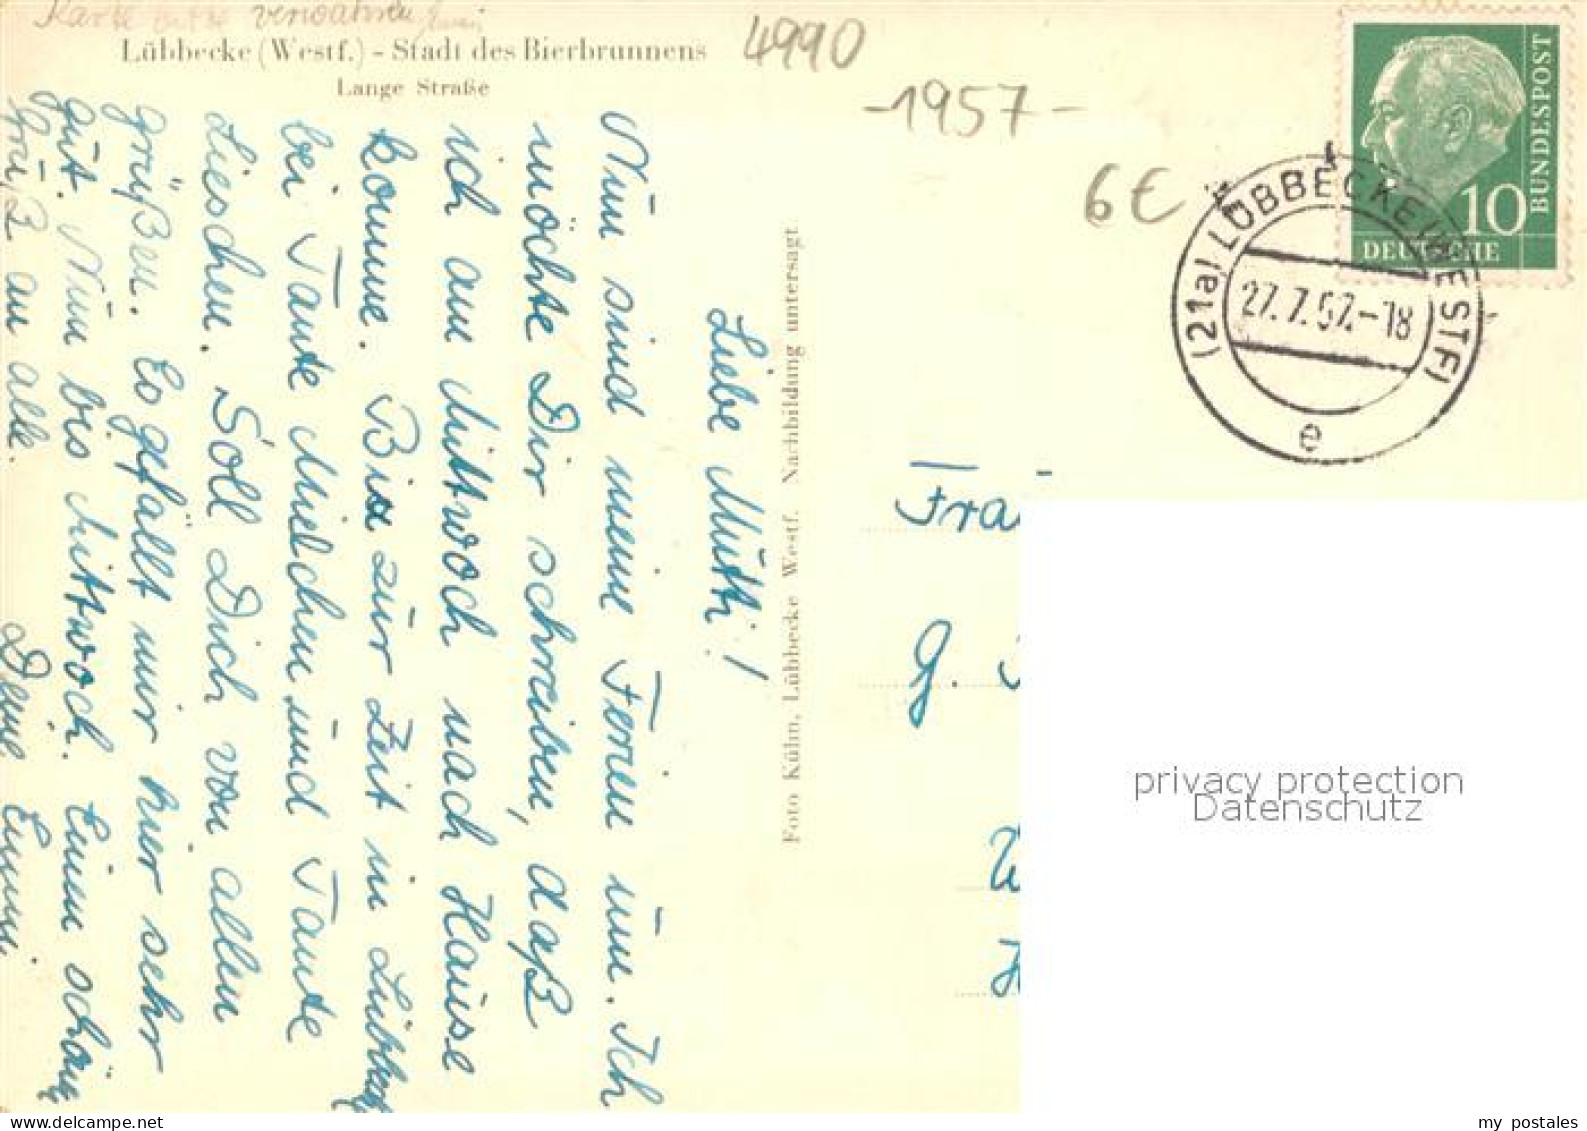 Karte bitte verwahren
Lübbecke (Westf.) - Stadt des Bierbrunnens
Lange Straße
4990
-1957-
6€
BUNDESPOST
10
DEUTSCHE
(21a) LÜBBECKE (WESTF)
27.7.57.-18
e
Liebe Mutti!
Nun sind meine Ferien um. Ich
möchte Dir schreiben, daß
ich am Mittwoch nach Hause
komme. Bin zur Zeit in Lübbecke
bei Tante Mielchen und Tante
Lieschen. Soll Dich von allen
grüßen. Es gefällt mir hier sehr
gut. Nun bis Mittwoch. Einen schönen
Gruß an alle.
Deine Emmi
Foto Kühn, Lübbecke Westf. Nachbildung untersagt
Fra
G.
privacy protection
Datenschutz
my postales